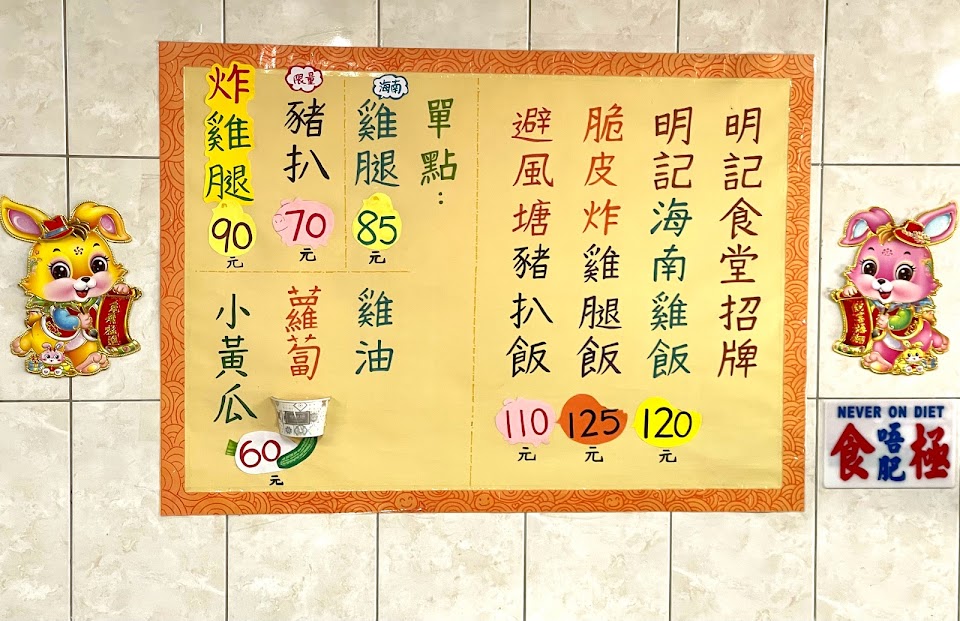 明記食堂招牌
明記海南雞飯
120
元
脆皮炸雞腿飯
125
元
避風塘豬扒飯
110
元
單點:
海南
雞腿
85
元
限量
豬扒
70
元
炸雞腿
90
元
雞油
蘿蔔
小黃瓜
60
元
NEVER ON DIET
食唔肥極